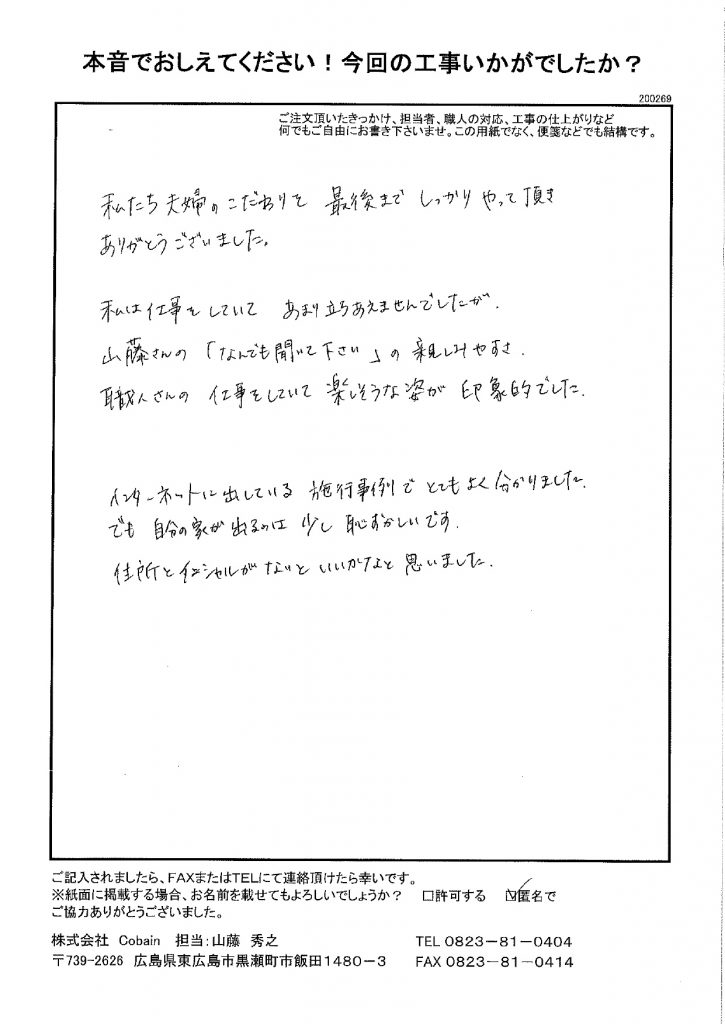 本音でおしえてください！今回の工事いかがでしたか？
200269
ご注文頂いたきっかけ、担当者、職人の対応、工事の仕上がりなど
何でもご自由にお書き下さいませ。この用紙でなく、便箋などでも結構です。
私たち夫婦のこだわりを 最後まで しっかり やって頂き
ありがとうございました。
私は仕事をしていて あまり立ちあえませんでしたが、
山藤さんの「なんでも聞いて下さい」の親しみやすさ、
職人さんの 仕事をしていて 楽しそうな姿が 印象的でした。
インターネットに出している 施行事例で とてもよく分かりました。
でも 自分の家が出るのは 少し 恥ずかしいです。
住所とイニシャルがないと いいかなと 思いました。
ご記入されましたら、FAXまたはTELにて連絡頂けたら幸いです。
※紙面に掲載する場合、お名前を載せてもよろしいでしょうか？ □許可する ☑匿名で
ご協力ありがとうございました。
株式会社 Cobain 担当：山藤 秀之 TEL 0823－81－0404
〒739-2626 広島県東広島市黒瀬町市飯田1480－3 FAX 0823－81－0414